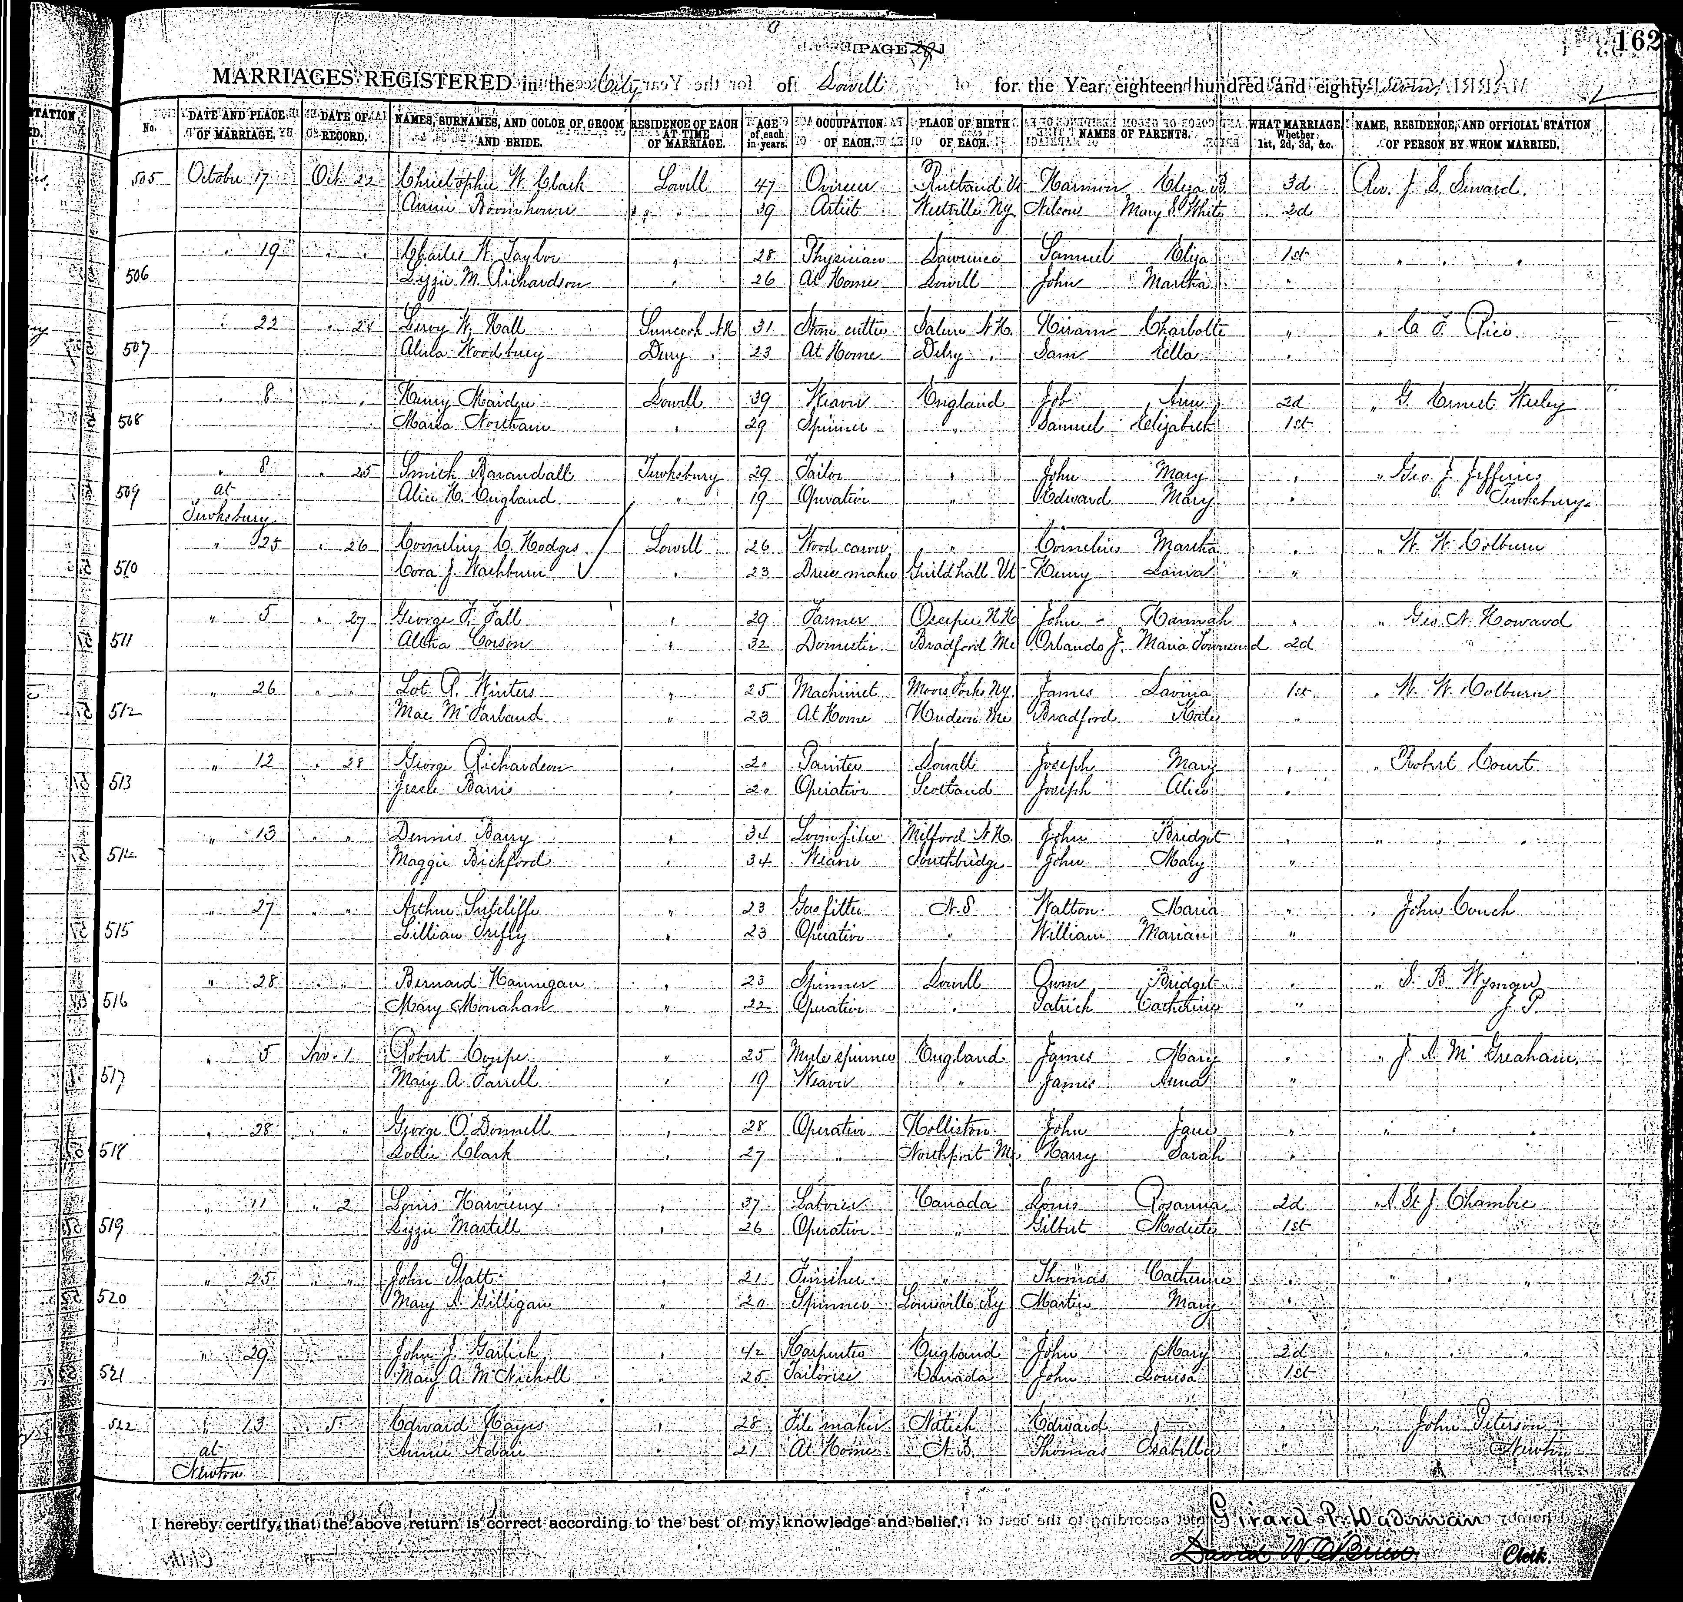 162
[PAGE
MARRIAGES REGISTERED in the City of Lowell for the Year eighteen hundred and eighty-seven,
No. DATE AND PLACE OF MARRIAGE. DATE OF RECORD. NAMES, SURNAMES, AND COLOR OF GROOM AND BRIDE. RESIDENCE OF EACH AT TIME OF MARRIAGE. AGE of each in years. OCCUPATION OF EACH. PLACE OF BIRTH OF EACH. NAMES OF PARENTS. WHAT MARRIAGE, Whether 1st, 2d, 3d, &c. NAME, RESIDENCE, AND OFFICIAL STATION OF PERSON BY WHOM MARRIED.
505 October 17 Oct. 22 Christopher W. Clark Lowell 47 Overseer Rutland Vt Harmon Eliza B 3d Rev. J. S. Seward.
Annie " " 39 Artist Westville Ny Nelson Mary S. White 2d
506 " 19 " " Charles W. Taylor " 28 Physician Lawrence Samuel Eliza 1st " " "
Lizzie M. Richardson " 26 At Home Lowell John Martha "
507 " 22 " 24 Leroy W. Hall Suncook N.H. 31 Stone cutter Salem N.H. Hiram Charlotte " " C. F. Rice
Woodbury Derry " 23 At Home Derry " Sam Ella "
508 " 8 " " Henry Maiden Lowell 39 Weaver England Job Ann 2d " G. Ernest
Maria Northam " 29 Spinner " Samuel Elizabeth 1st
509 " 8 " 25 Smith Tewksbury 29 Tailor " John Mary " " Geo. J. Jefferies
at Alice H. England " 19 Operative " Edward Mary " Tewksbury
Tewksbury
510 " 25 " 26 Cornelius C. Hodges Lowell 26 Wood carver " Cornelius Martha " " W. W. Colburn
Cora J. Washburn " 23 Dress maker Guildhall Vt Henry "
511 " 5 " 27 George F. Fall " 29 Farmer Ossipee N.H. John Hannah " " Geo. N. Howard
Corson " 32 Domestic Bradford Me Orlando J. Maria Townsend 2d
512 " 26 " " Lot P. Winters " 25 Machinist Moors Forks Ny. James Lavina 1st " W. W. Colburn
Mae McFarland " 23 At Home Hudson Me Bradford Kate "
513 " 12 " 28 George Richardson " 20 Painter Lowell Joseph Mary " " Robert Court
Jessie " 20 Operative Scotland Joseph Alice "
514 " 13 " " Dennis Barry " 34 Loomfixer Milford N.H. John Bridget " " " "
Maggie Bickford " 34 Weaver Southbridge John Mary "
515 " 27 " " Arthur Sutcliffe " 23 Gas fitter N.S Walton Maria " " John Couch
Lillian " 23 Operative " William Marian "
516 " 28 " " Bernard Hannigan " 23 Spinner Lowell Owen Bridget " " S. B. Wyman
Mary Monahan " 22 Operative " Patrick Catherine " J. P.
517 " 5 Nov. 1 Robert Coupe " 25 Mule spinner England James Mary " " J. A. McGreaham.
Mary A. Farrell " 19 Weaver " James Anna "
518 " 28 " " George O'Donnell " 28 Operative Holliston John Jane " " " "
Lollie Clark " 27 " Northport Me Harry Sarah "
519 " 11 " 2 Louis Harvieux " 37 Laborer Canada Louis Rosanna 2d " A St J. Chambre
Lizzie Martell " 26 Operative " Gilbert Modeste 1st
520 " 25 " " John Platt " 21 Finisher " Thomas Catherine " " " "
Mary A. Gilligan " 20 Spinner Louisville Ky Martin Mary "
521 " 29 " " John J. Garlick " 42 Carpenter England John Mary 2d " " "
Mary A. McNicholl " 25 Tailoress Canada John Louisa 1st
522 " 13 " 5 Edward Hayes " 28 File maker Natick Edward " " John Peterson
at Annie Adair " 21 At Home N.B. Thomas Isabella " Newton
Newton
I hereby certify, that the above return is correct according to the best of my knowledge and belief.
Girard P. Dadman
David W. O'Brien Clerk.